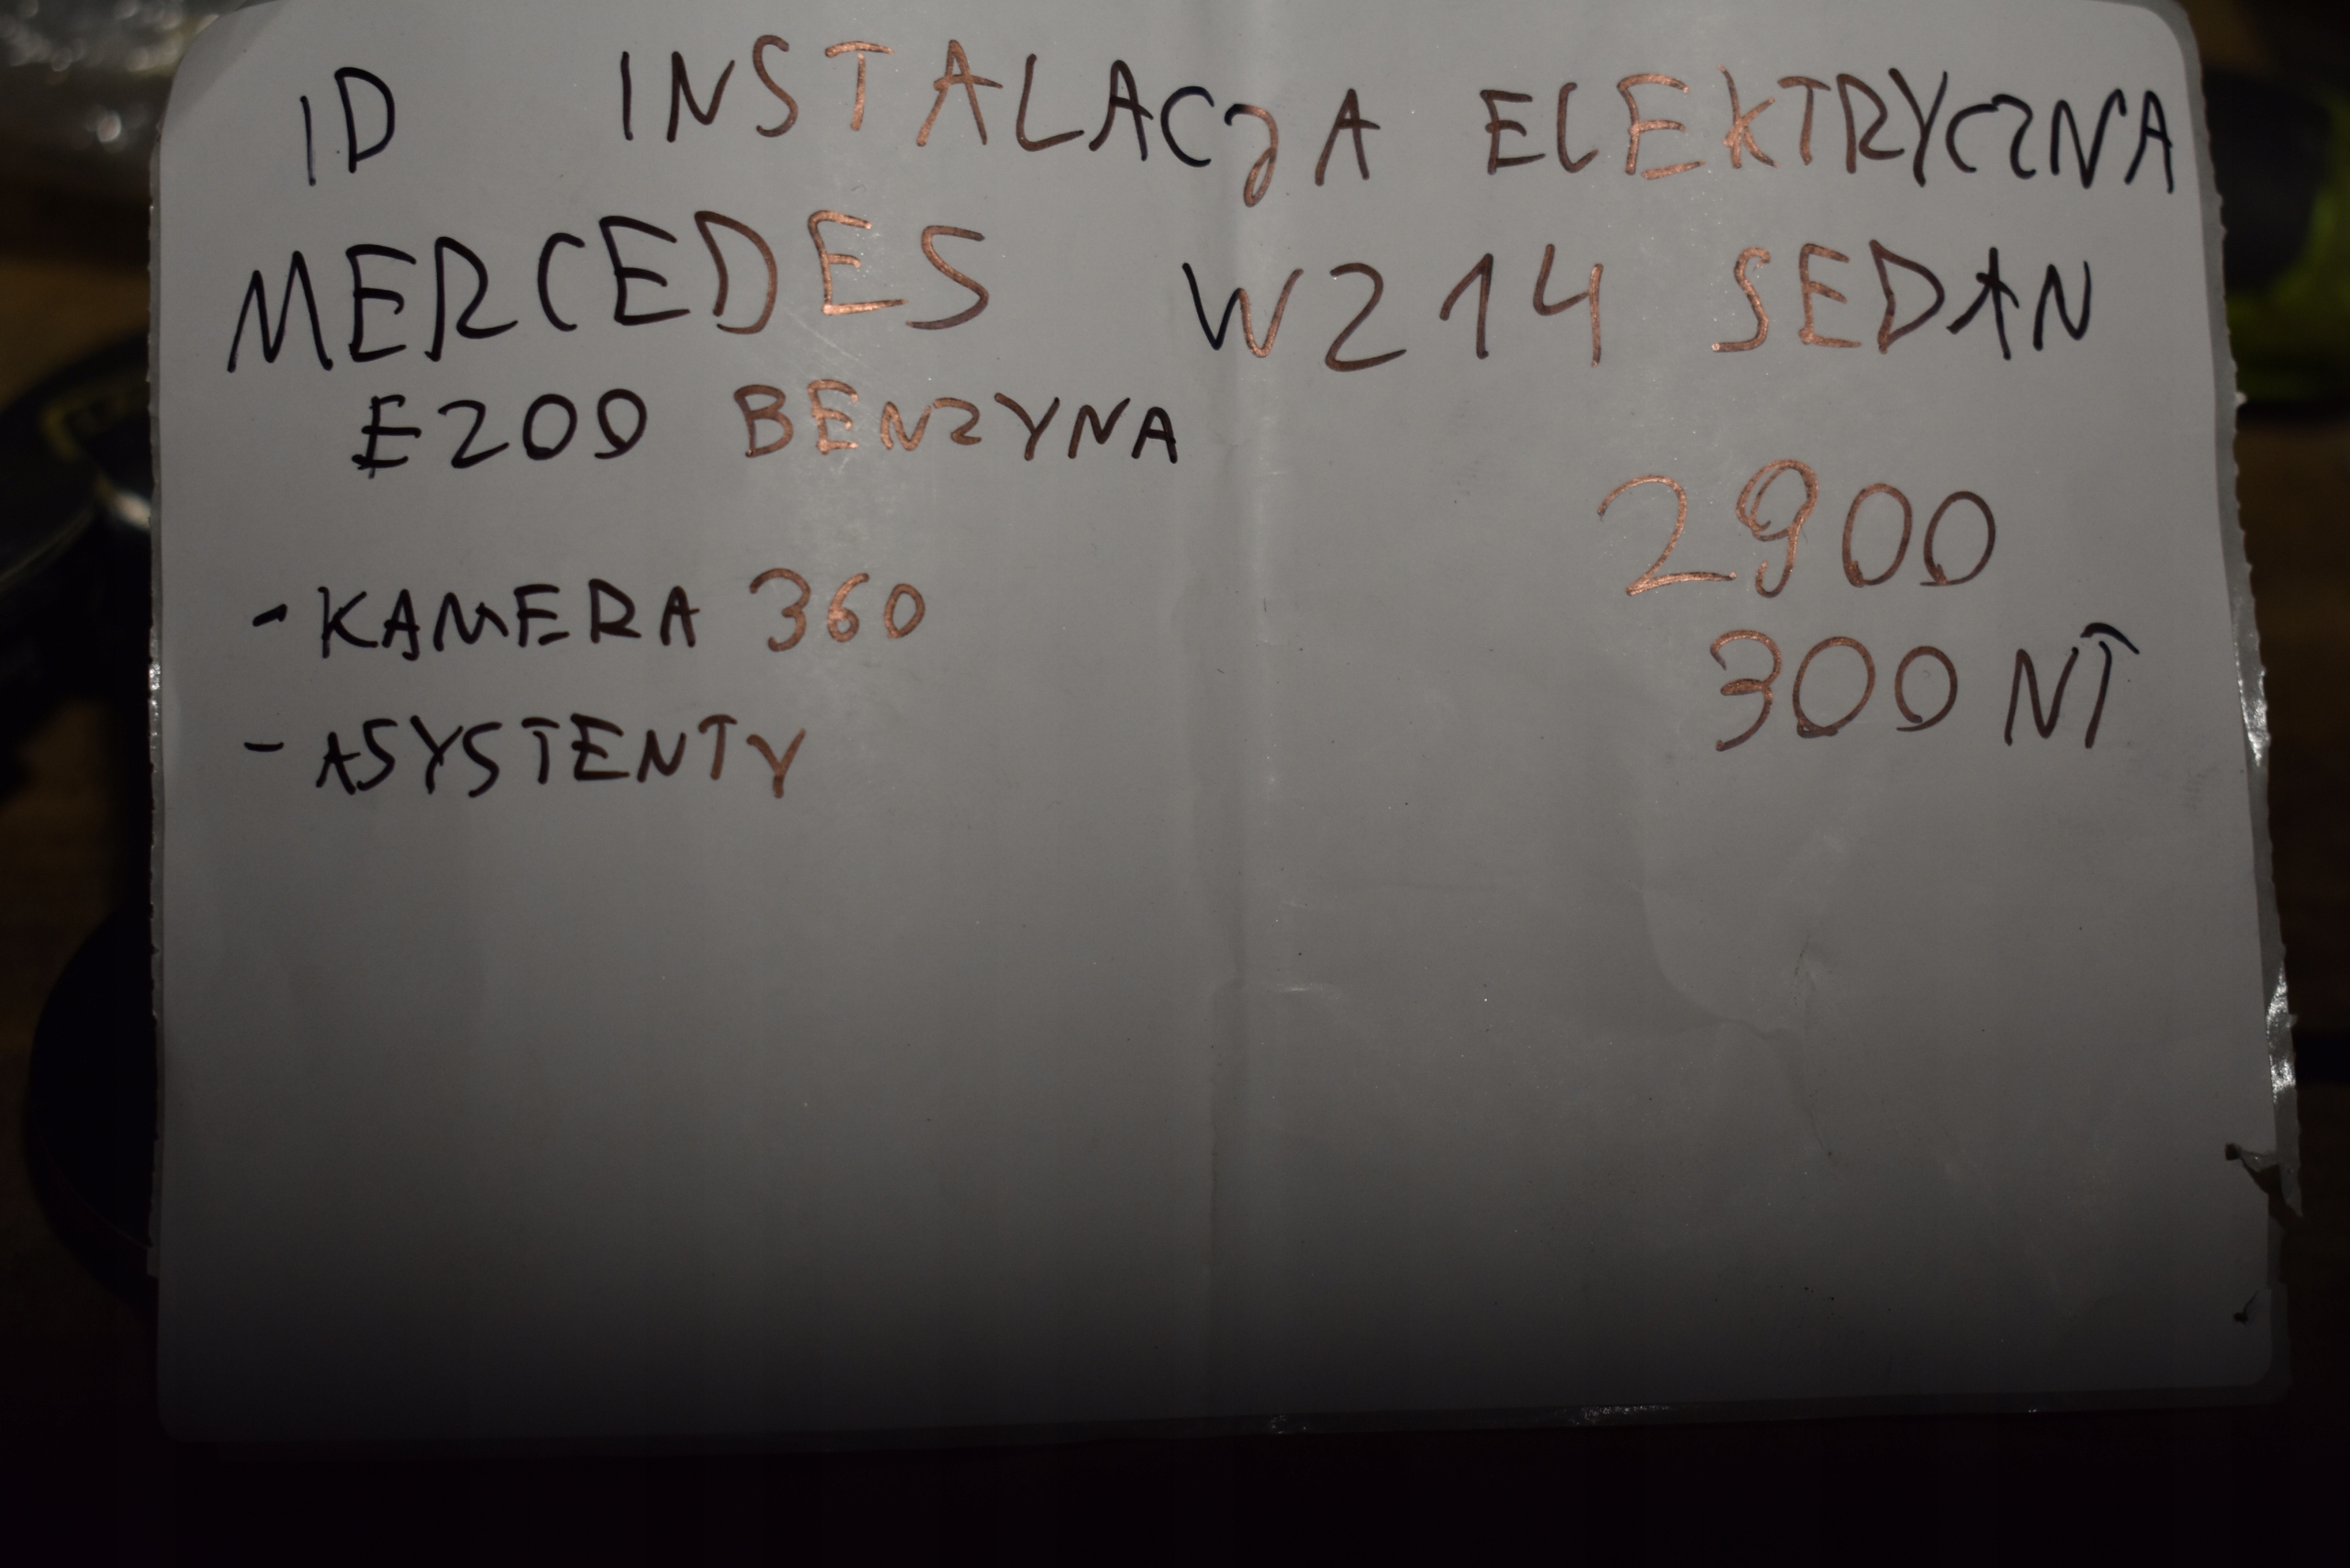 ID INSTALACJA ELEKTRYCZNA
MERCEDES W214 SEDAN
E200 BENZYNA
2900
- KAMERA 360
300 NT
- ASYSTENTY